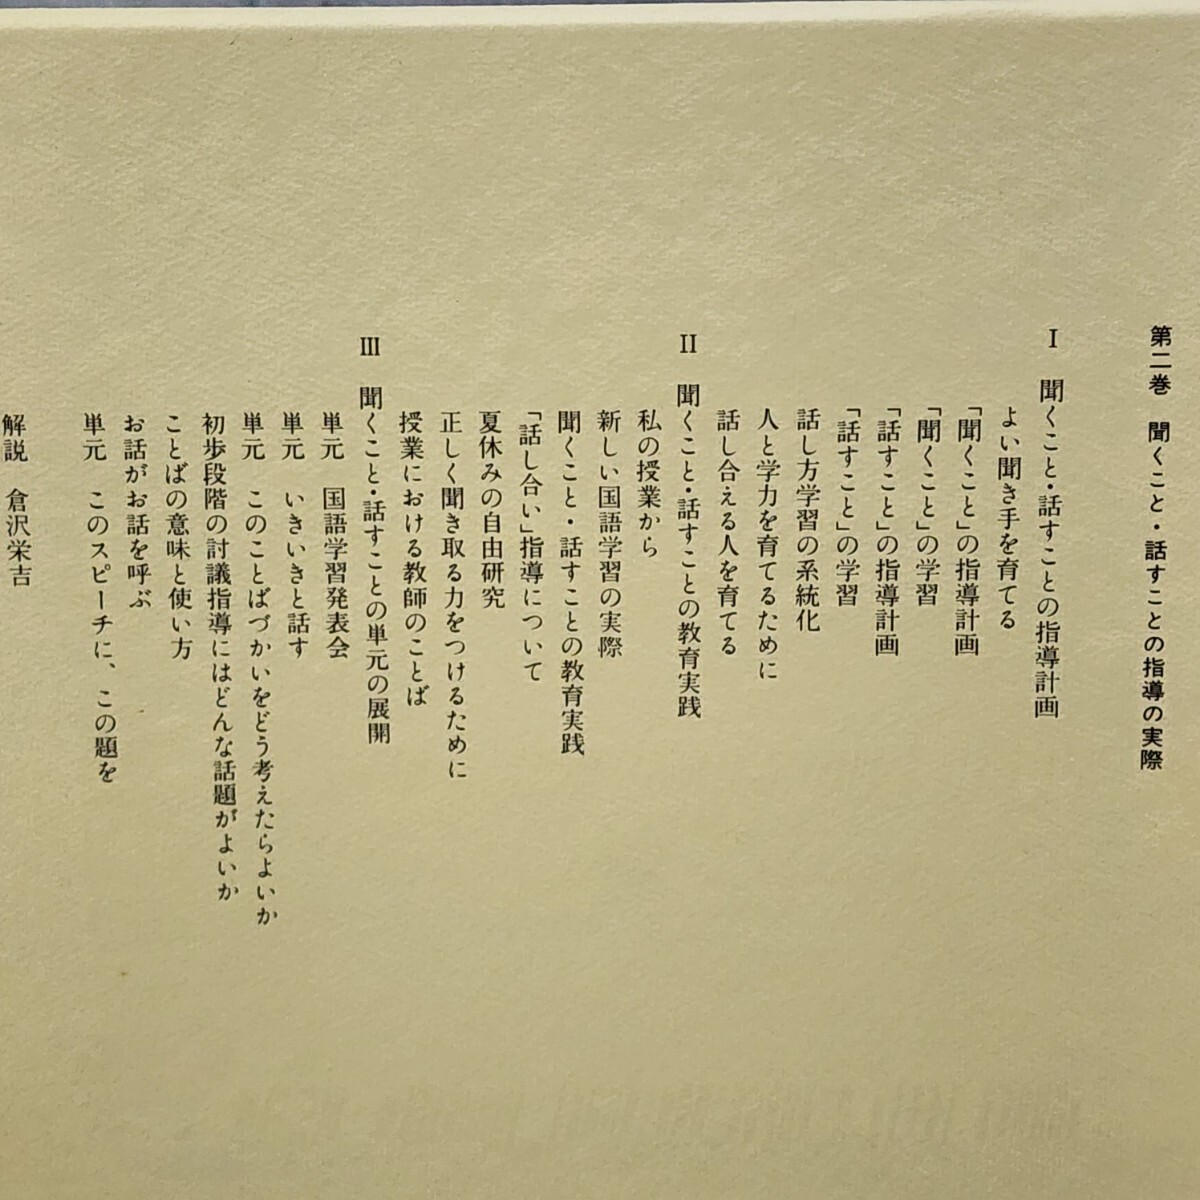 第二巻　聞くこと・話すことの指導の実際
Ⅰ　聞くこと・話すことの指導計画
よい聞き手を育てる
「聞くこと」の指導計画
「聞くこと」の学習
「話すこと」の指導計画
「話すこと」の学習
話し方学習の系統化
人と学力を育てるために
話し合える人を育てる
Ⅱ　聞くこと・話すことの教育実践
私の授業から
新しい国語学習の実際
聞くこと・話すことの教育実践
「話し合い」指導について
夏休みの自由研究
正しく聞き取る力をつけるために
授業における教師のことば
Ⅲ　聞くこと・話すことの単元の展開
単元　国語学習発表会
単元　いきいきと話す
単元　このことばづかいをどう考えたらよいか
初歩段階の討議指導にはどんな話題がよいか
ことばの意味と使い方
お話がお話を呼ぶ
単元　このスピーチに、この題を
解説　倉沢栄吉